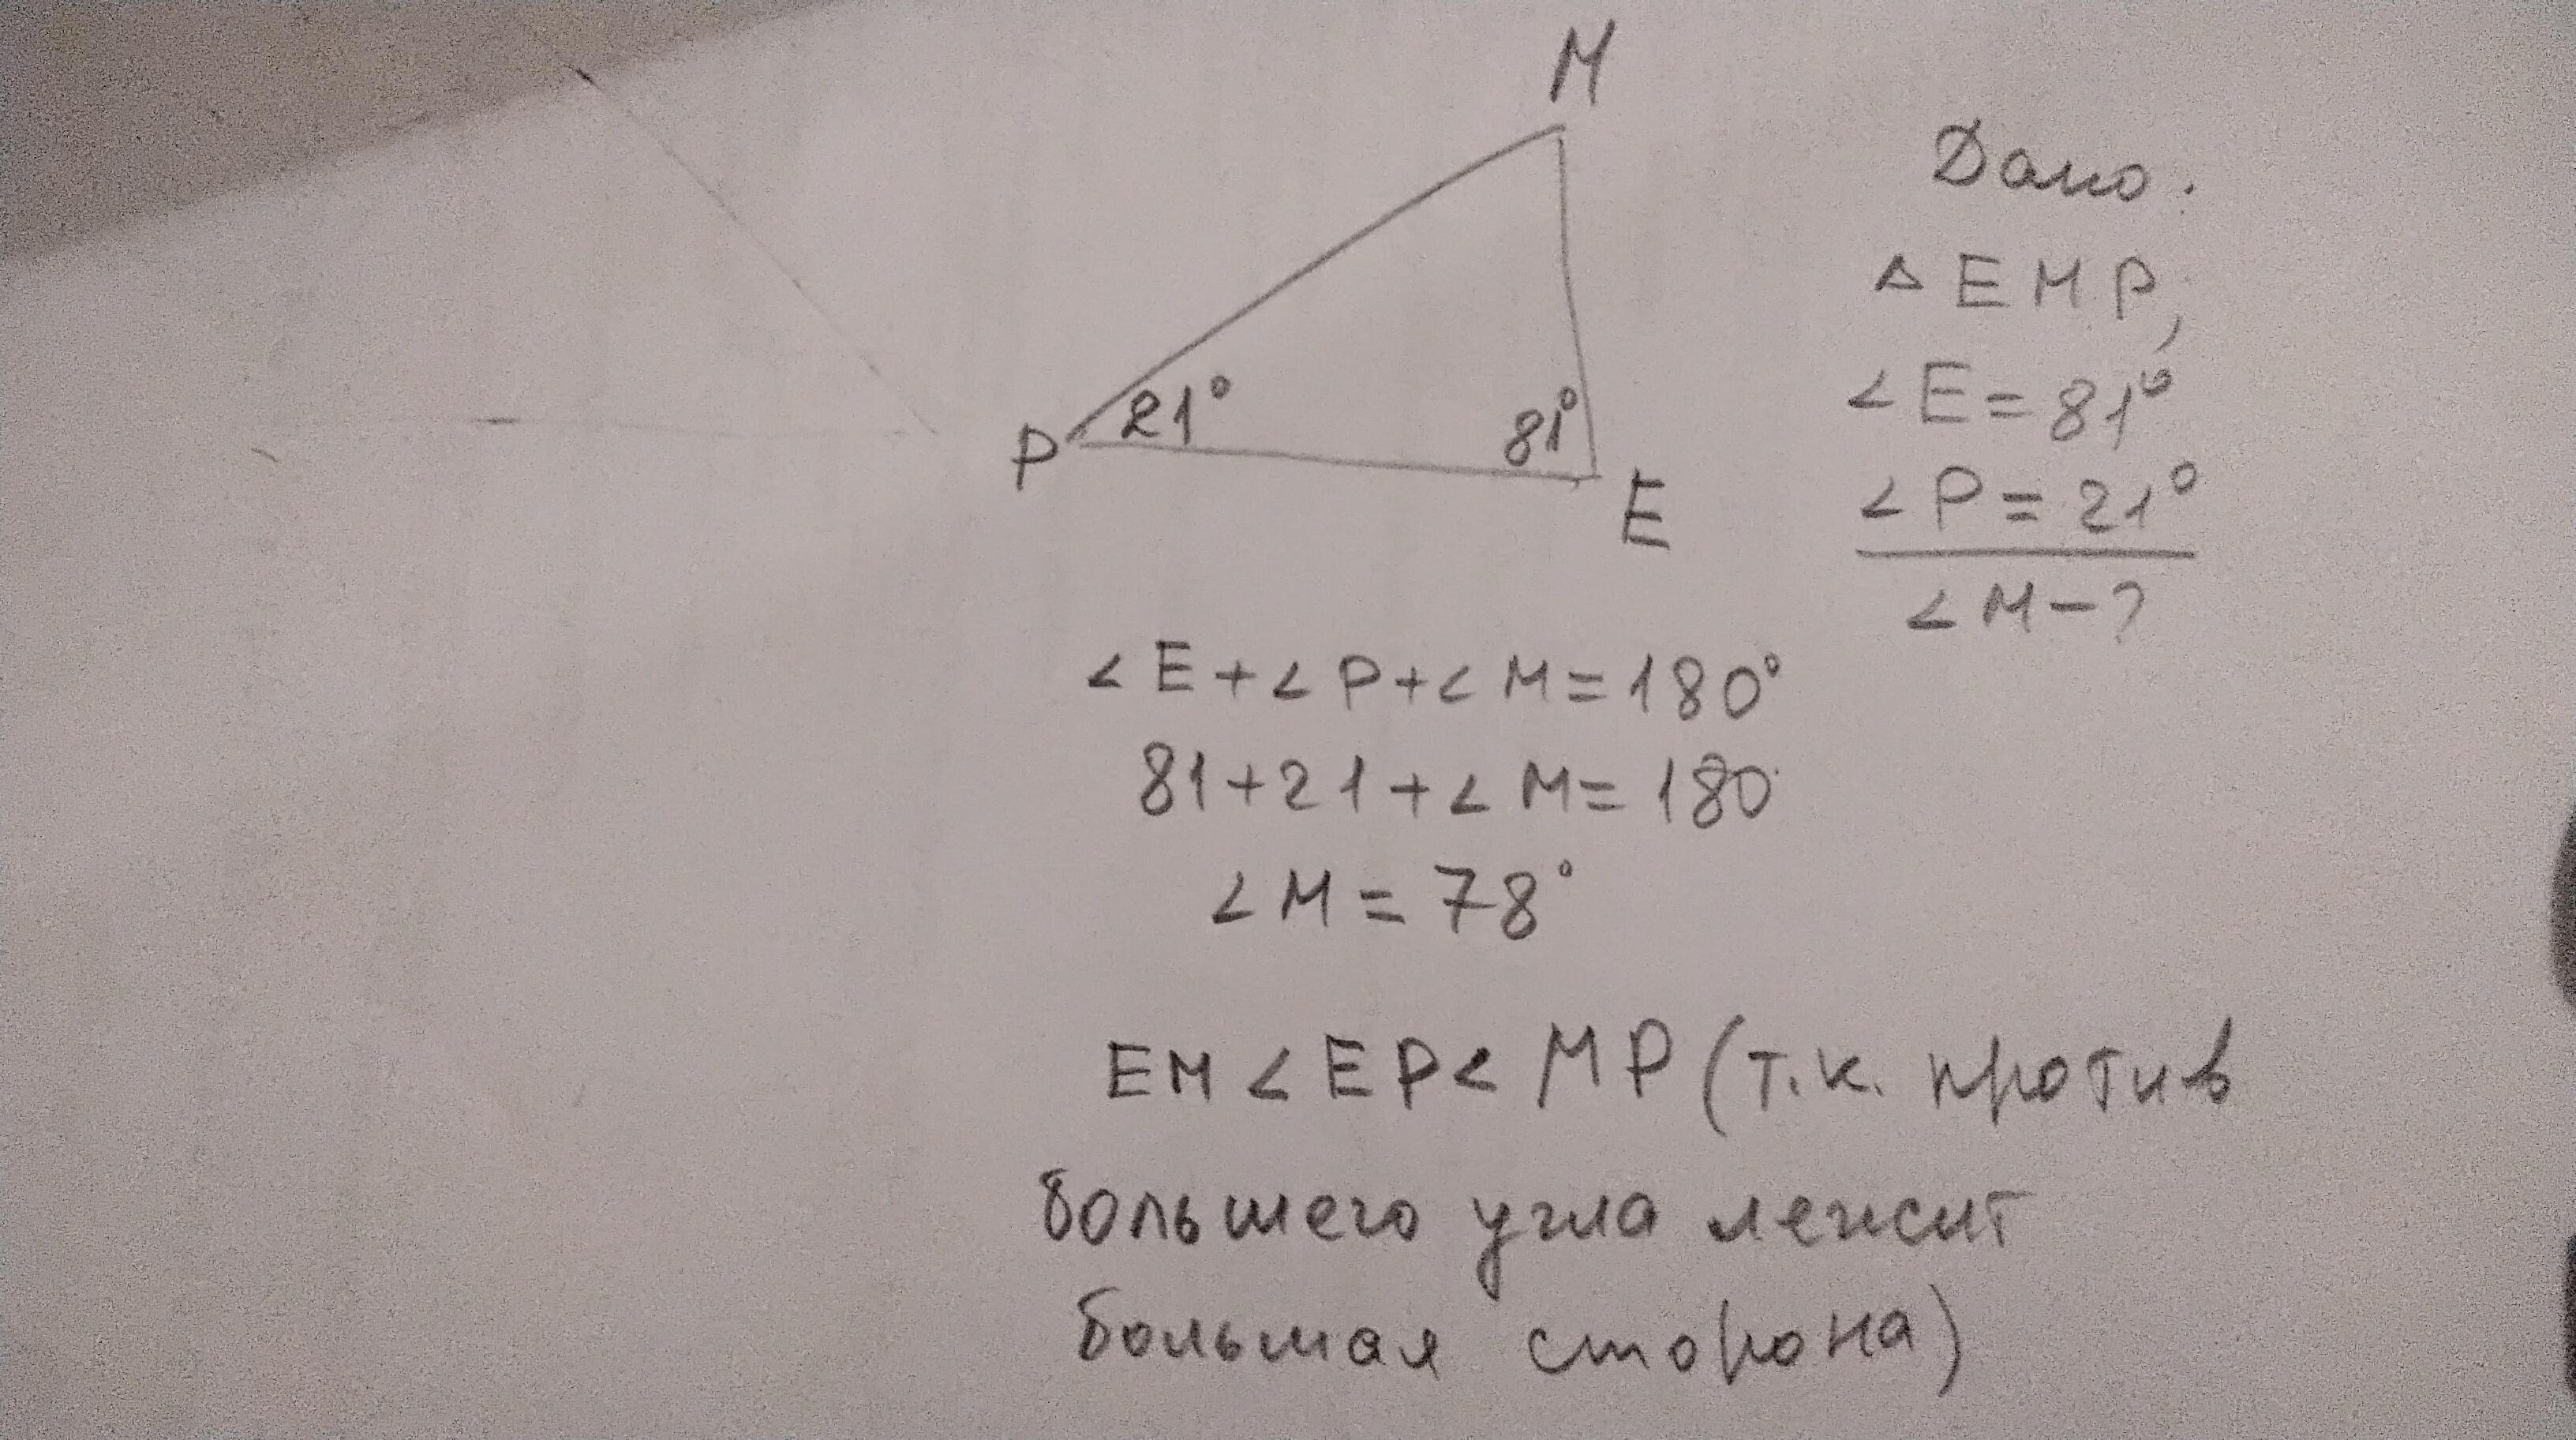 M
P 21° 81° E
Дано:
△ EMP,
∠E=81°
∠P=21°
∠M-?
∠E+∠P+∠M=180°
81+21+∠M=180
∠M=78°
EM<EP<MP (т.к. против
большего угла лежит
большая сторона)